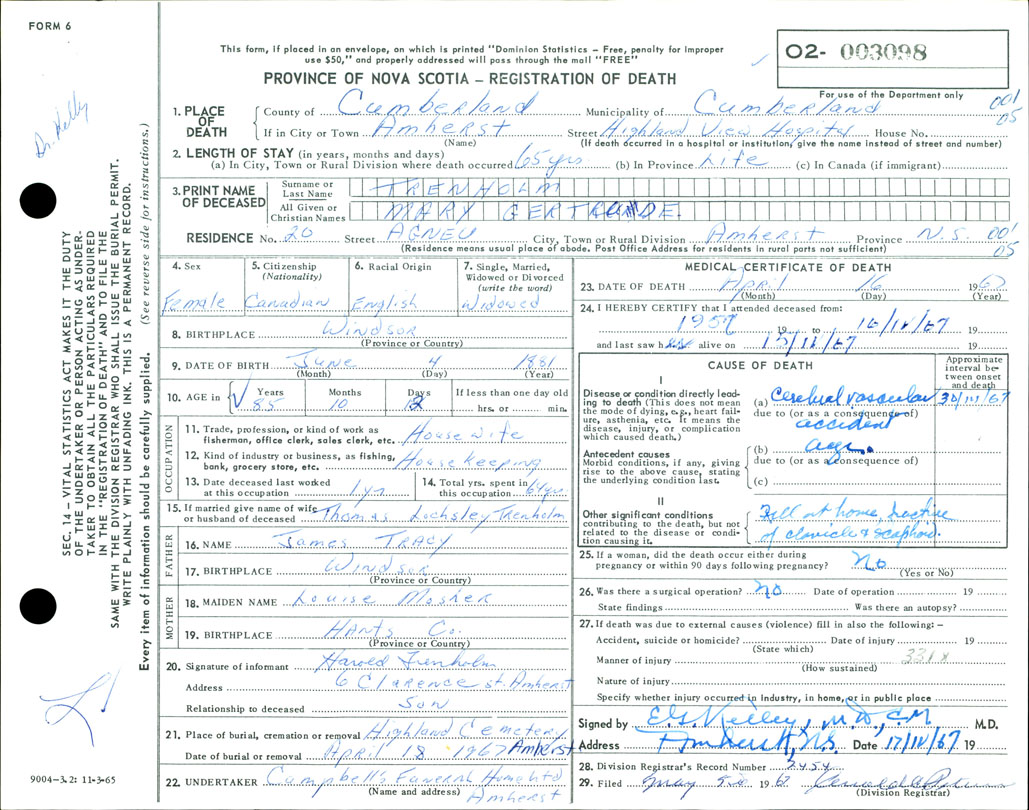 FORM 6
This form, if placed in an envelope, on which is printed "Dominion Statistics – Free, penalty for improper
use $50," and properly addressed will pass through the mail "FREE"
PROVINCE OF NOVA SCOTIA – REGISTRATION OF DEATH
02- 003098
For use of the Department only
Dr. Kelly
SEC. 14 – VITAL STATISTICS ACT MAKES IT THE DUTY
OF THE UNDERTAKER OR PERSON ACTING AS UNDER-
TAKER TO OBTAIN ALL THE PARTICULARS REQUIRED
IN THE "REGISTRATION OF DEATH" AND TO FILE THE
SAME WITH THE DIVISION REGISTRAR WHO SHALL ISSUE THE BURIAL PERMIT.
WRITE PLAINLY WITH UNFADING INK. THIS IS A PERMANENT RECORD.
Every item of information should be carefully supplied. (See reverse side for instructions.)
1. PLACE OF DEATH
County of Cumberland Municipality of Cumberland 001
05
If in City or Town Amherst Street Highland View Hospital House No.
(Name) (If death occurred in a hospital or institution, give the name instead of street and number)
2. LENGTH OF STAY (in years, months and days)
(a) In City, Town or Rural Division where death occurred 65 yrs (b) In Province Life (c) In Canada (if immigrant)
3. PRINT NAME OF DECEASED
Surname or Last Name TRENHOLM
All Given or Christian Names MARY GERTRUDE
RESIDENCE No. 20 Street AGNEW City, Town or Rural Division Amherst Province N.S. 001
05
(Residence means usual place of abode. Post Office Address for residents in rural parts not sufficient)
4. Sex
Female
5. Citizenship
(Nationality)
Canadian
6. Racial Origin
English
7. Single, Married,
Widowed or Divorced
(write the word)
Widowed
8. BIRTHPLACE Windsor
(Province or Country)
9. DATE OF BIRTH June 4 1881
(Month) (Day) (Year)
10. AGE in Years Months Days If less than one day old
85 10 12 hrs. or min.
OCCUPATION
11. Trade, profession, or kind of work as
fisherman, office clerk, sales clerk, etc. House wife
12. Kind of industry or business, as fishing,
bank, grocery store, etc. House Keeping
13. Date deceased last worked
at this occupation 1 yr
14. Total yrs. spent in
this occupation 64 yrs
15. If married give name of wife
or husband of deceased Thomas Lochsley Trenholm
FATHER
16. NAME James TRACY
17. BIRTHPLACE Windsor
(Province or Country)
MOTHER
18. MAIDEN NAME Louise Mosher
19. BIRTHPLACE HANTS Co.
(Province or Country)
20. Signature of informant Harold Trenholm
Address 6 Clarence st. Amherst
Relationship to deceased Son
21. Place of burial, cremation or removal Highland Cemetery
Amherst
Date of burial or removal April 18 1967
22. UNDERTAKER Campbell's Funeral Home Ltd
(Name and address) Amherst
9004-3.2: 11-3-65
MEDICAL CERTIFICATE OF DEATH
23. DATE OF DEATH April 16 1967
(Month) (Day) (Year)
24. I HEREBY CERTIFY that I attended deceased from:
1957 19 to 16/IV/67 19
and last saw h alive on 15/IV/67 19
CAUSE OF DEATH
Approximate
interval be-
tween onset
and death
I
Disease or condition directly lead-
ing to death (This does not mean
the mode of dying, e.g., heart fail-
ure, asthenia, etc. It means the
disease, injury, or complication
which caused death.)
(a) Cerebral vascular 30/III/67
due to (or as a consequence of)
accident
Antecedent causes
Morbid conditions, if any, giving
rise to the above cause, stating
the underlying condition last.
(b) age.
due to (or as a consequence of)
(c)
II
Other significant conditions
contributing to the death, but not
related to the disease or condi-
tion causing it.
Fall at home, fracture
of clavicle & scaphoid.
25. If a woman, did the death occur either during
pregnancy or within 90 days following pregnancy? No
(Yes or No)
26. Was there a surgical operation? No Date of operation 19
State findings Was there an autopsy?
27. If death was due to external causes (violence) fill in also the following: –
Accident, suicide or homicide? Date of injury 19
(State which)
Manner of injury 331X
(How sustained)
Nature of injury
Specify whether injury occurred in Industry, in home, or in public place
Signed by E.G. Kelley, M.D., C.M. M.D.
Address Amherst, N.S. Date 17/IV/67 19
28. Division Registrar's Record Number 2454
29. Filed May 5 1967
(Division Registrar)